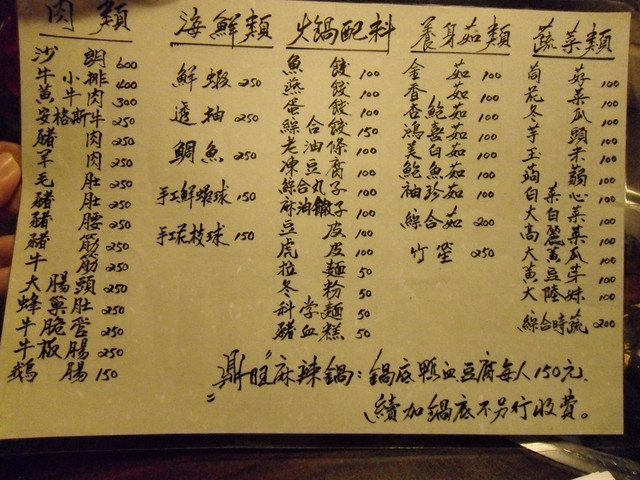 肉類
沙朗 600
牛小排 400
黃牛肉 300
安格斯牛 250
豬肉 250
羊肉 250
毛肚 250
豬肚 250
豬腰 250
豬筋 250
牛筋 250
大腸頭 250
蜂巢肚 250
牛脆管 250
牛板腸 250
鵝腸 150
海鮮類
鮮蝦 250
透抽 250
鯛魚 250
手工鮮蝦球 150
手工花枝球 150
火鍋配料
魚餃 100
燕餃 100
蛋餃 100
綜合餃 150
老油條 100
凍豆腐 100
綜合丸子 100
麻油馓子 100
豆皮 100
虎皮 100
拉麵 50
冬粉 50
科学麵 50
豬血糕 50
養身菇類
金茹 100
香茹 100
杏鮑茹 100
鴻喜茹 100
美白茹 100
鮑魚茹 100
袖珍茹 100
綜合茹 200
竹笙 250
蔬菜類
茼蒿 100
花菜 100
冬瓜 100
芋頭 100
玉米 100
蒟蒻 100
白菜心 100
大白菜 100
高麗菜 100
大黃瓜 100
黃豆芽 100
大陸妹 100
綜合時蔬 200
鼎旺麻辣鍋：鍋底鴨血豆腐每人150元,
續加鍋底不另行收費。